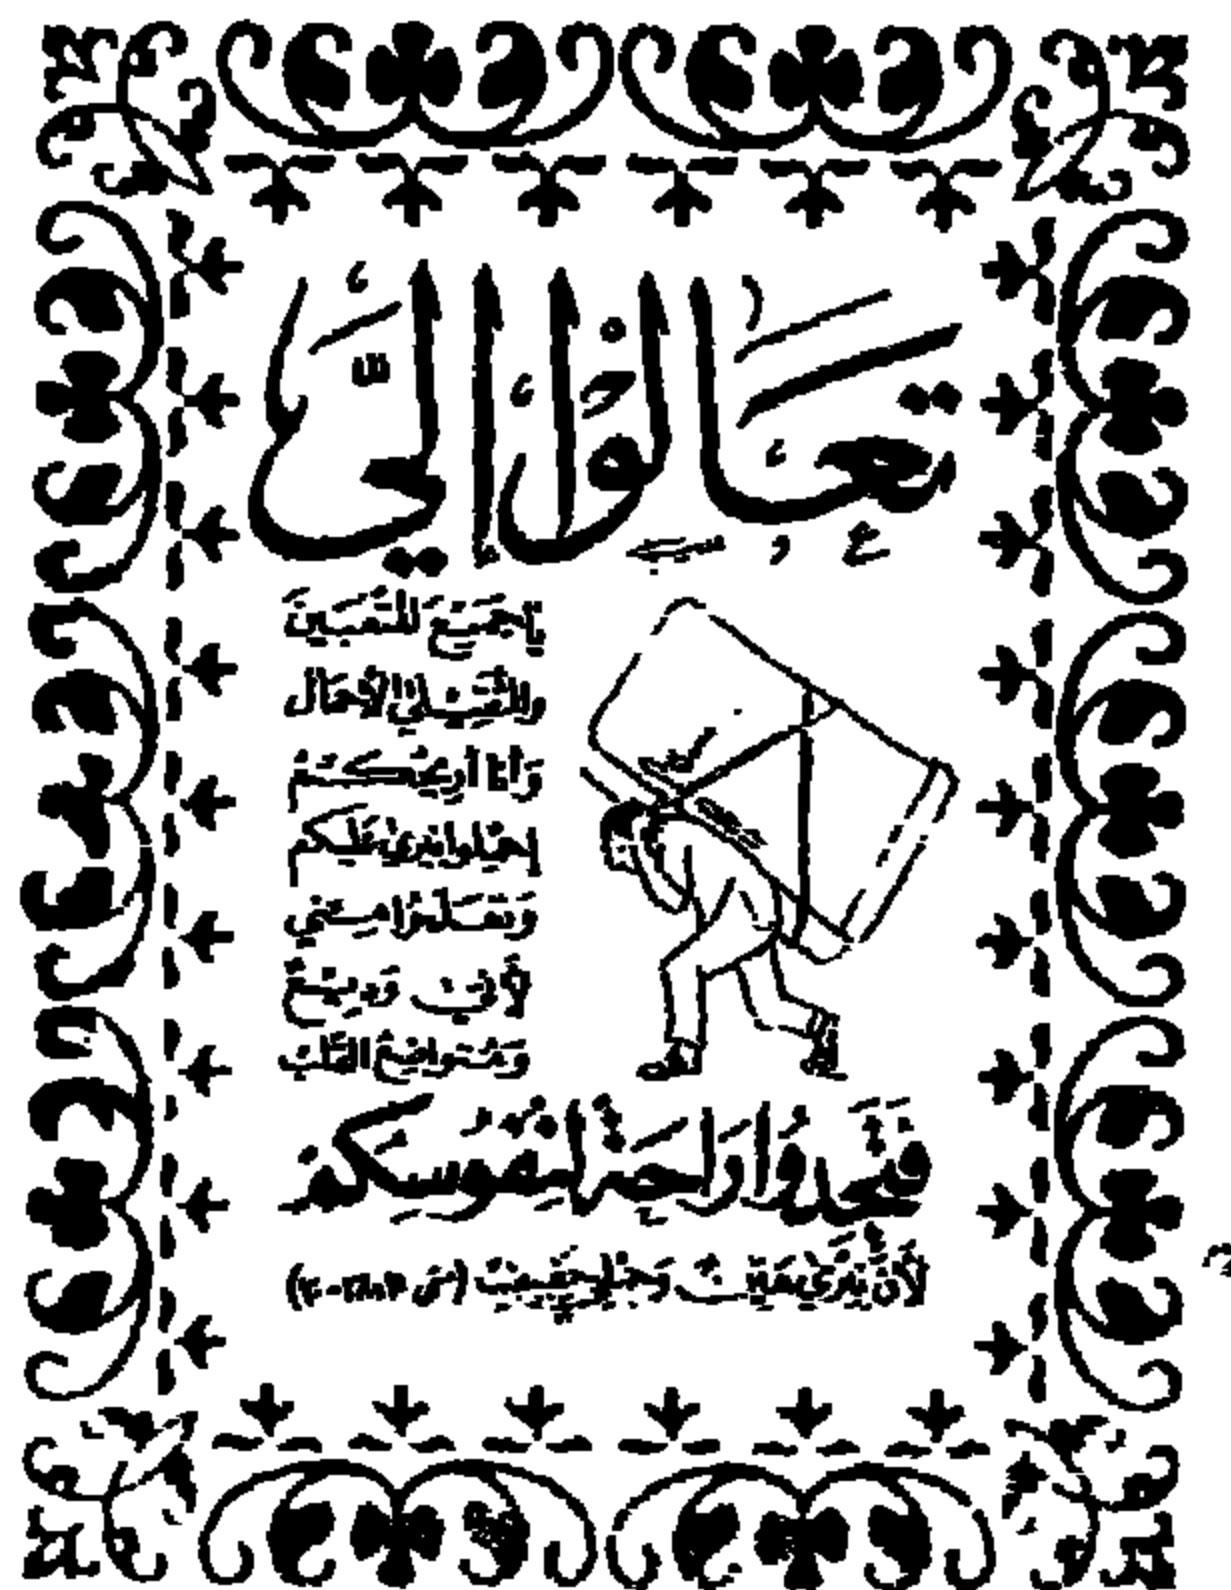 تَعَالَوْا إِلَيَّ
يَا جَمِيعَ المُتْعَبِينَ
والثَّقِيلِي الأَحْمَال
وَأَنَا أُرِيحُكُمْ
احْمِلُوا نِيرِي عَلَيْكُم
وَتَعَلَّمُوا مِنِّي
لأَنِّي وَدِيعٌ
وَمُتَوَاضِعُ القَلْبِ
فَتَجِدُوا رَاحَةً لِنُفُوسِكُمْ
لأَنَّ نِيرِي هَيِّنٌ وَحِمْلِي خَفِيفٌ (مت ٢٨:١١-٣٠)